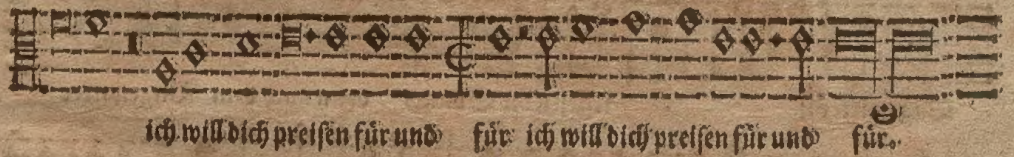 ich will dich preisen für und für ich will dich preisen für und für.